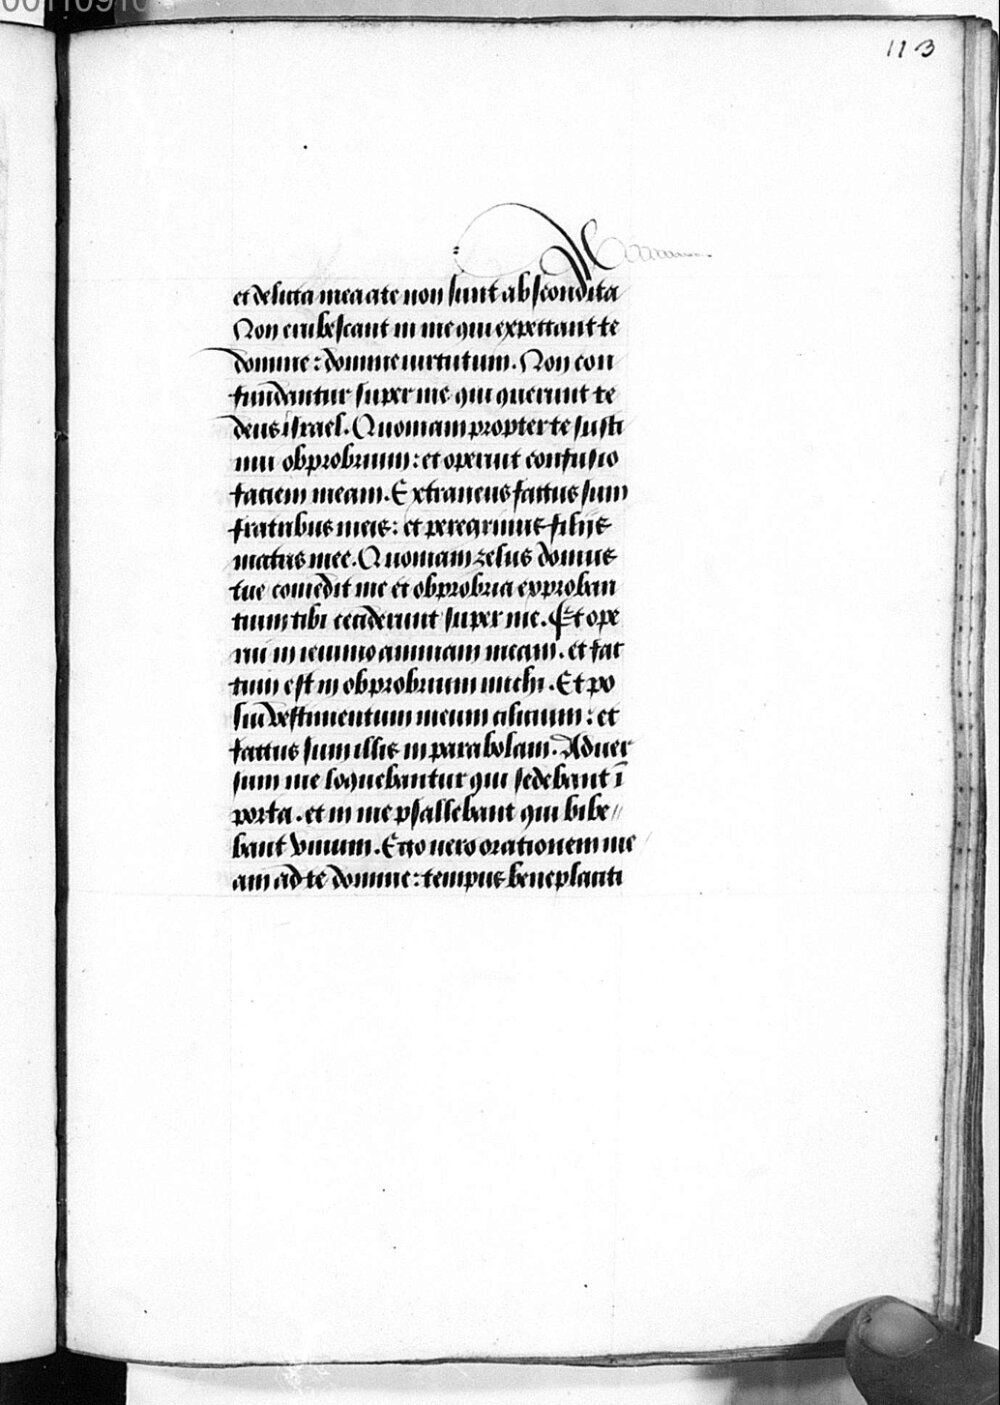 113
et delicta mea a te non sunt abscondita
Non erubescant in me qui expectant te
domine: domine uirtutum. Non con
fundantur super me qui querunt te
deus israel. Quoniam propter te susti
nui obprobrium: et operuit confusio
faciem meam. Extraneus factus sum
fratribus meis: et peregrinus filijs
matris mee. Quoniam zelus domus
tue comedit me et obprobria exproban
tium tibi ceciderunt super me. Et ope
rui in ieiunio animam meam. et fac
tum est in obprobrium michi. Et po
sui vestimentum meum cilicium: et
factus sum illis in parabolam. Aduer
sum me loquebantur qui sedebant ī
porta. et in me psallebant qui bibe//
bant vinum. Ego uero orationem me
am ad te domine: tempus beneplaciti